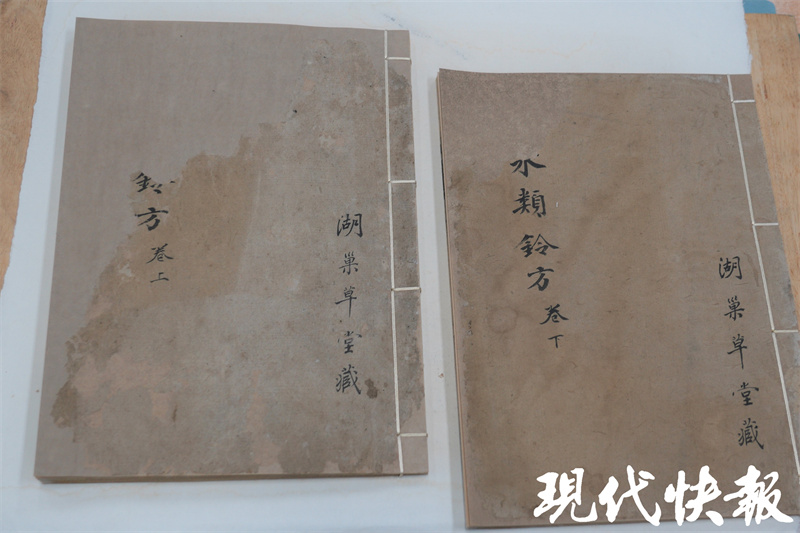 鈴方 卷上
湖巢草堂藏
水類鈴方 卷下
湖巢草堂藏
現代快報